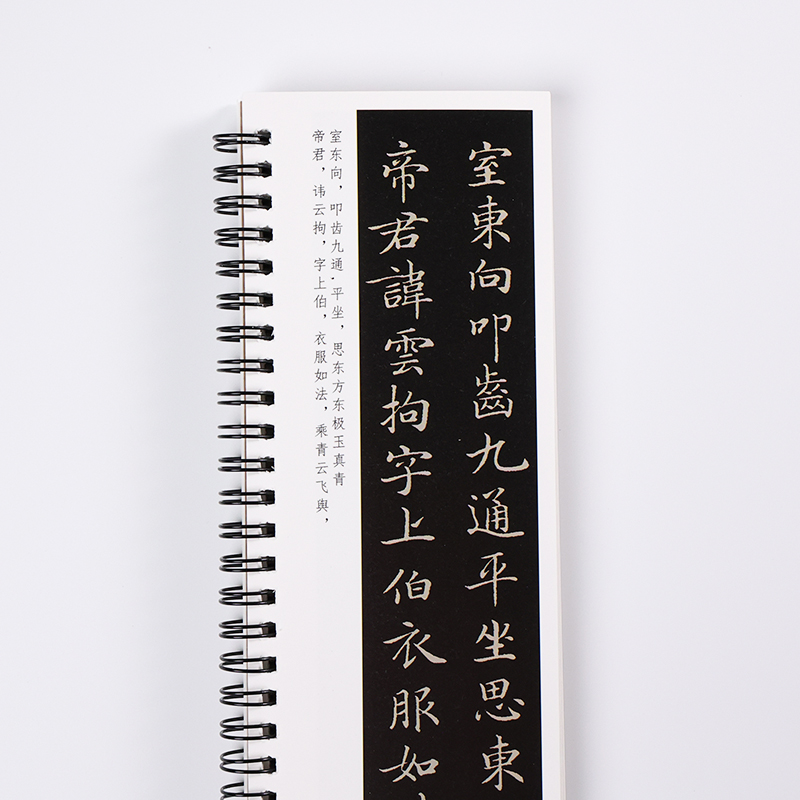 室東向叩齒九通平坐思東
帝君諱雲拘字上伯衣服如
室东向，叩齿九通.平坐，思东方东极玉真青
帝君，讳云拘，字上伯，衣服如法，乘青云飞舆，